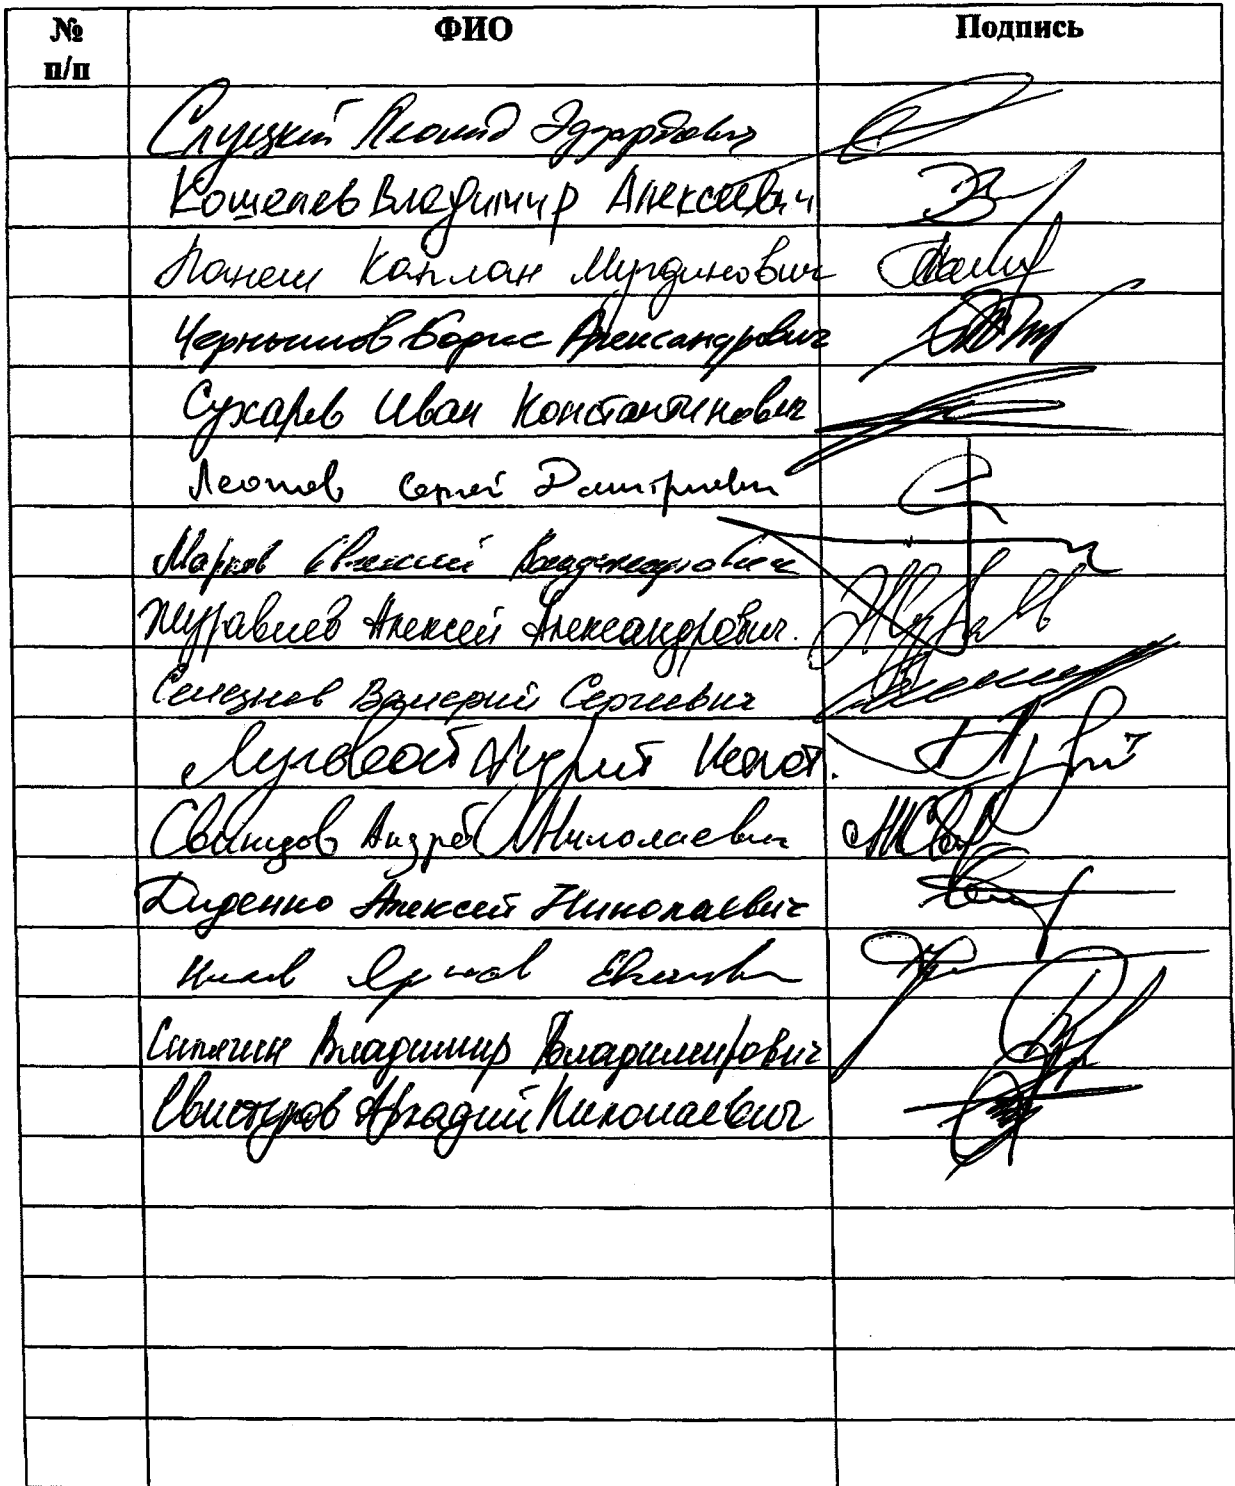 № п/п ФИО Подпись
Слуцкий Леонид Эдуардович
Кошелев Владимир Алексеевич
Панеш Каплан Мугдинович
Чернышов Борис Александрович
Сухарев Иван Константинович
Леонов Сергей Дмитриевич
Марков Евгений Владимирович
Журавлев Алексей Александрович.
Селезнев Валерий Сергеевич
Луговой Андрей Конст.
Свинцов Андрей Николаевич
Диденко Алексей Николаевич
Нилов Ярослав Евгеньевич
Сипягин Владимир Владимирович
Свистунов Аркадий Николаевич